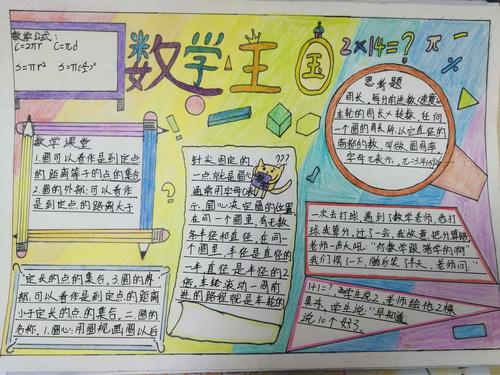 数学公式:
C=2πr C=πd
S=πr² S=π(d/2)²
数学王国
2×14=? π
数学课堂
1.圆可以看作是到定点
的距离等于的点的集合
2.圆的外部:可以看作
是到定点的距离大于
定长的点的集合,3.圆的
部,可以看作是到定点的距离
小于定长的点的集合。二.圆的
名称,1.圆心:用圆规画圆以后
针尖固定的
一点就是圆心
通常用字母O表
示,圆心决定圆的位置,
在同一个圆里,有无数
条半径和直径,在同一
个圆里,半径是直径的
一半直径是半径的2
倍,车轮滚动一周前
进的路程就是车轮的
???
思考题
周长,每分前进数(速度)=
车轮的周长×转数,任何
一个圆的周长除以它直径的
商都的数,叫做圆周率,
字母π表示,
一次去打球,遇到了数学老师,他打
球我算分,过了一会,我故意把分算错,
老师一点大吼:“你数学跟谁学的啊”
我们愣了一下,随后笑了半天,老师问:
1+1=? 学生说2,老师给他2棵
果木,学生说:“早知道
说10个好了。